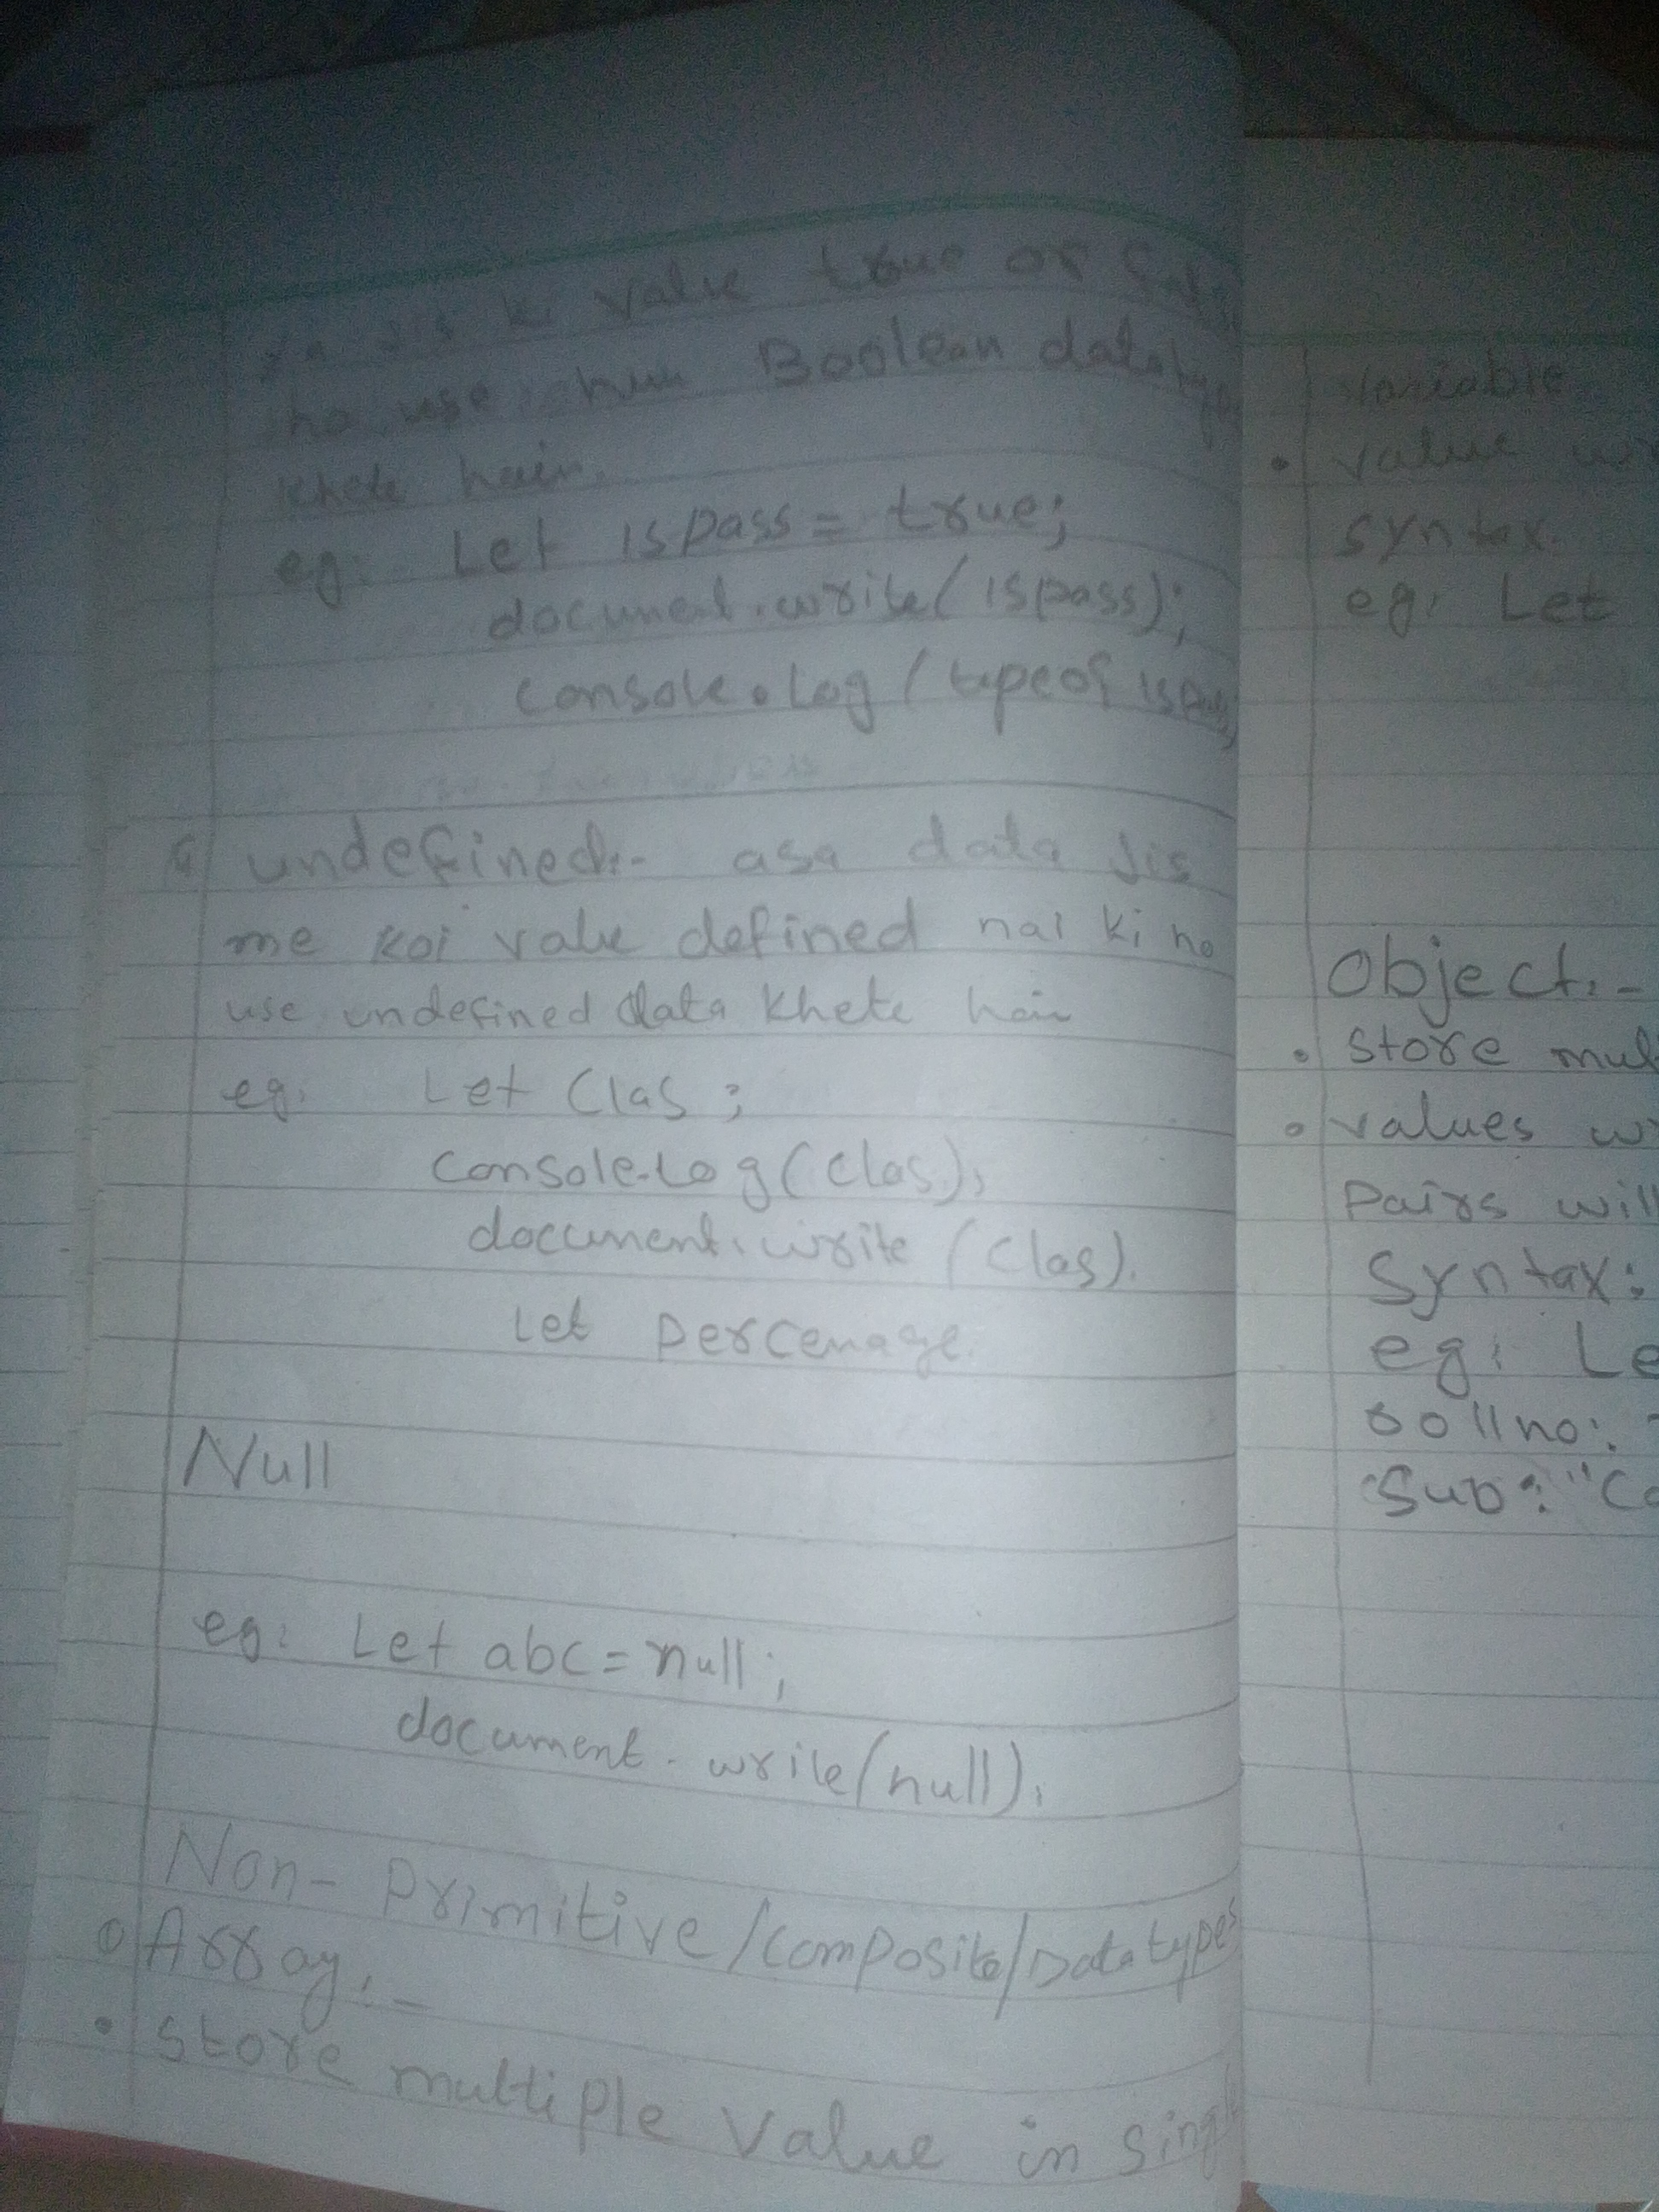 Jis ki value true or
ho use hum Boolean data
khete hain.
eg: Let ispass = true;
document.write(ispass);
console.log(typeof ispass
undefined:- asa data Jis
me koi value defined nai ki ho
use undefined data khete hain
eg. Let Clas ;
console.log(clas);
document.write (Clas).
Let percenage.
Null
eg: Let abc = null;
document.write(null);
Non-Primitive/composite/Datatypes
Array:-
• Store multiple value in singl
variable
• value w
syntax.
eg: Let
Object:-
• store mul
• values w
Pairs will
Syntax:
eg: Le
rollno:
Sub: "Co